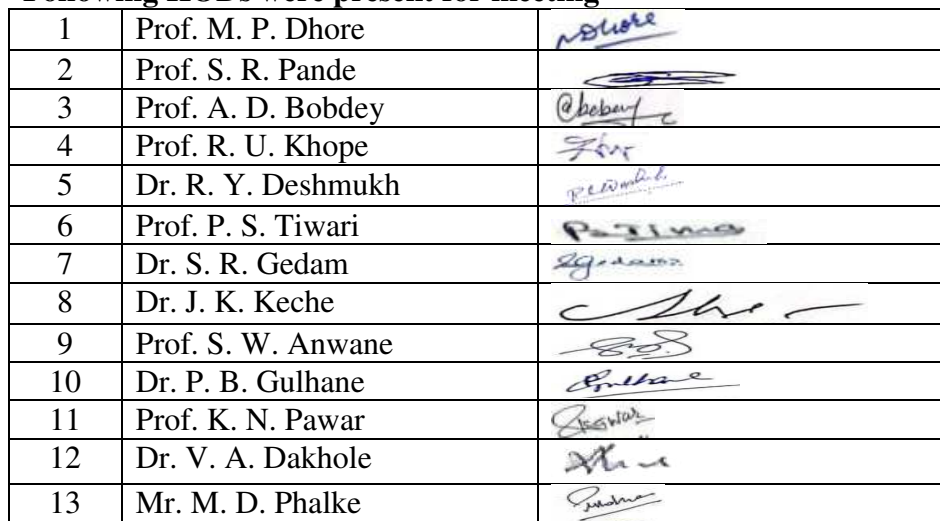 Following HODs were present for meeting
1 Prof. M. P. Dhore Dhore
2 Prof. S. R. Pande
3 Prof. A. D. Bobdey
4 Prof. R. U. Khope
5 Dr. R. Y. Deshmukh
6 Prof. P. S. Tiwari
7 Dr. S. R. Gedam
8 Dr. J. K. Keche
9 Prof. S. W. Anwane
10 Dr. P. B. Gulhane
11 Prof. K. N. Pawar
12 Dr. V. A. Dakhole
13 Mr. M. D. Phalke